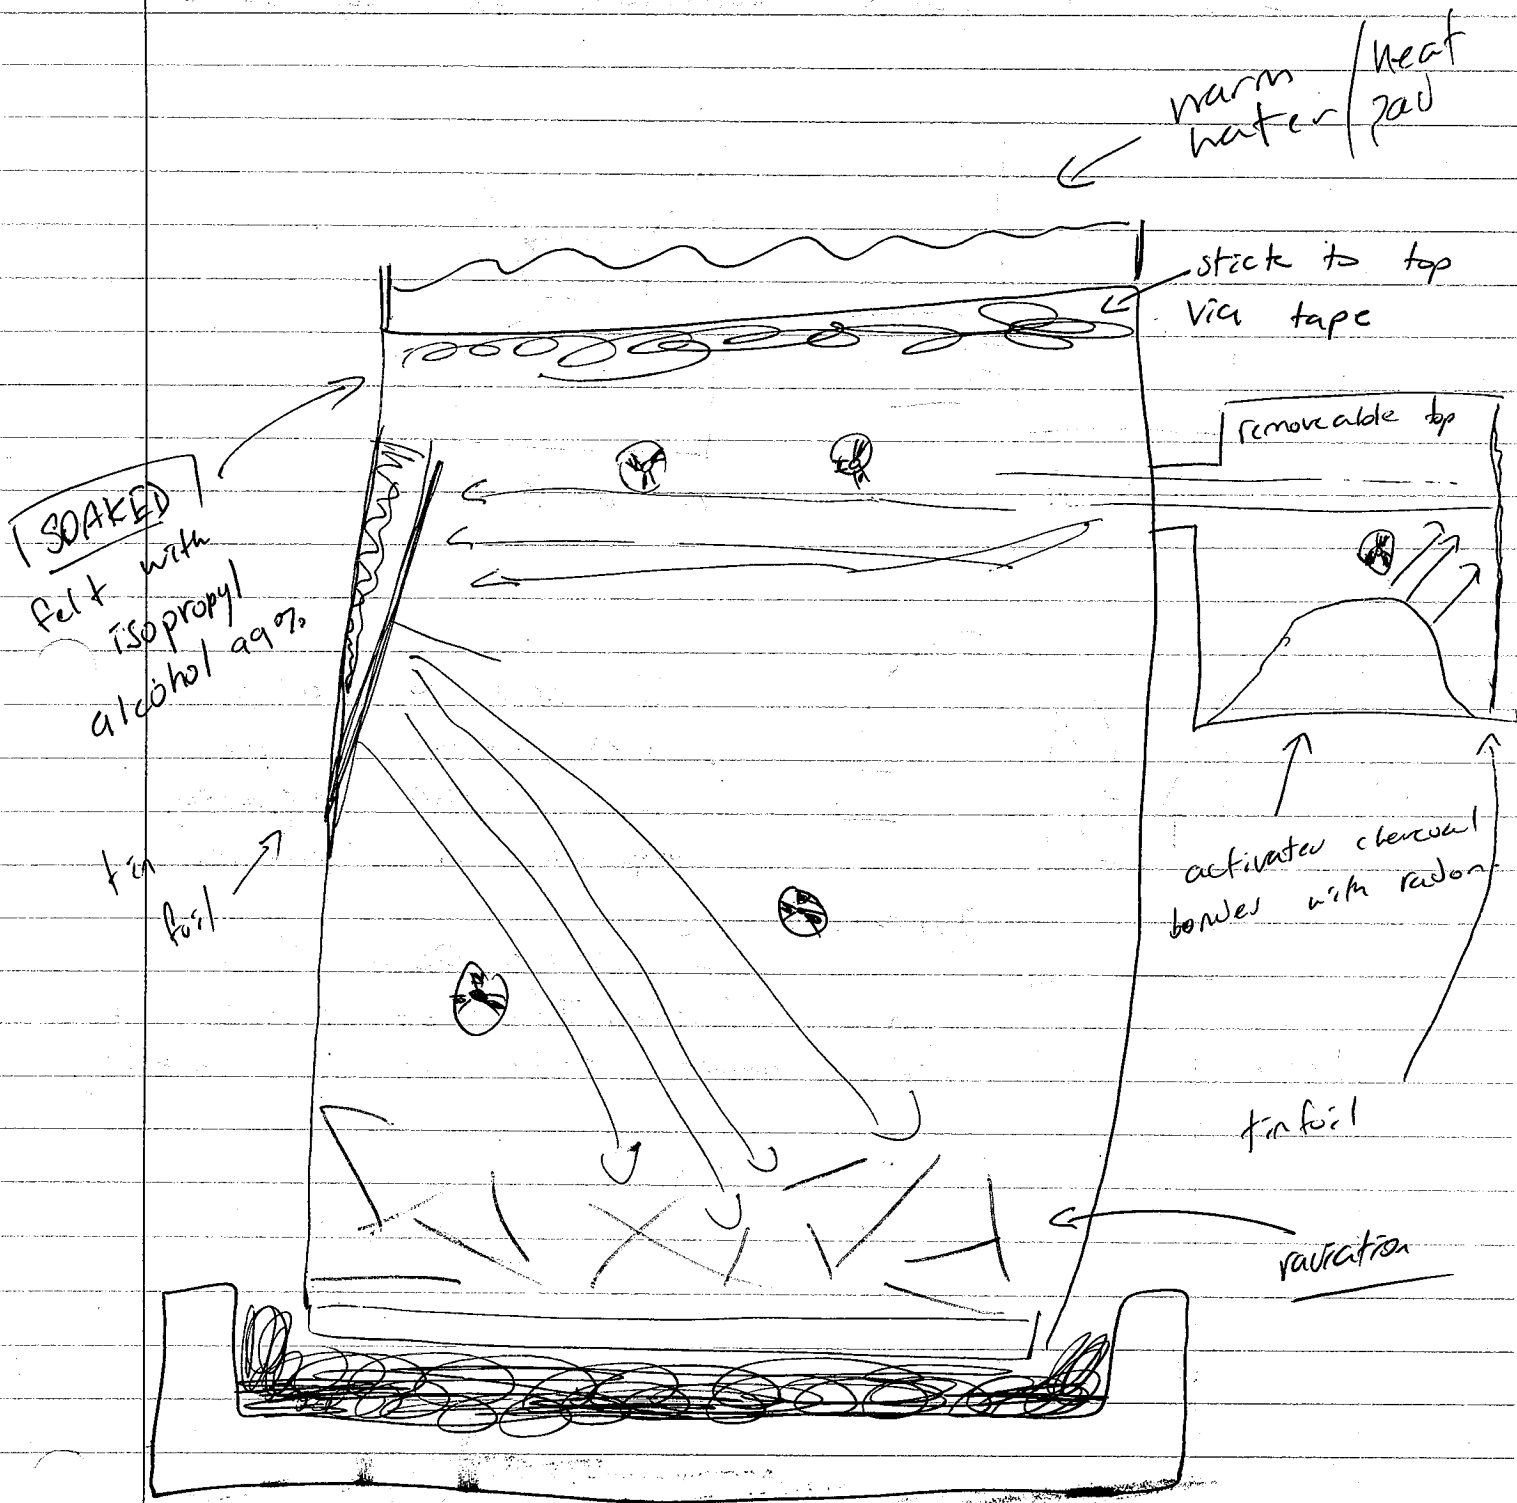 warm
water / heat
pad
stick to top
via tape
removeable top
SOAKED
felt with
isopropyl
alcohol 99%
tin
foil
activated charcoal
with radon
tinfoil
radiation